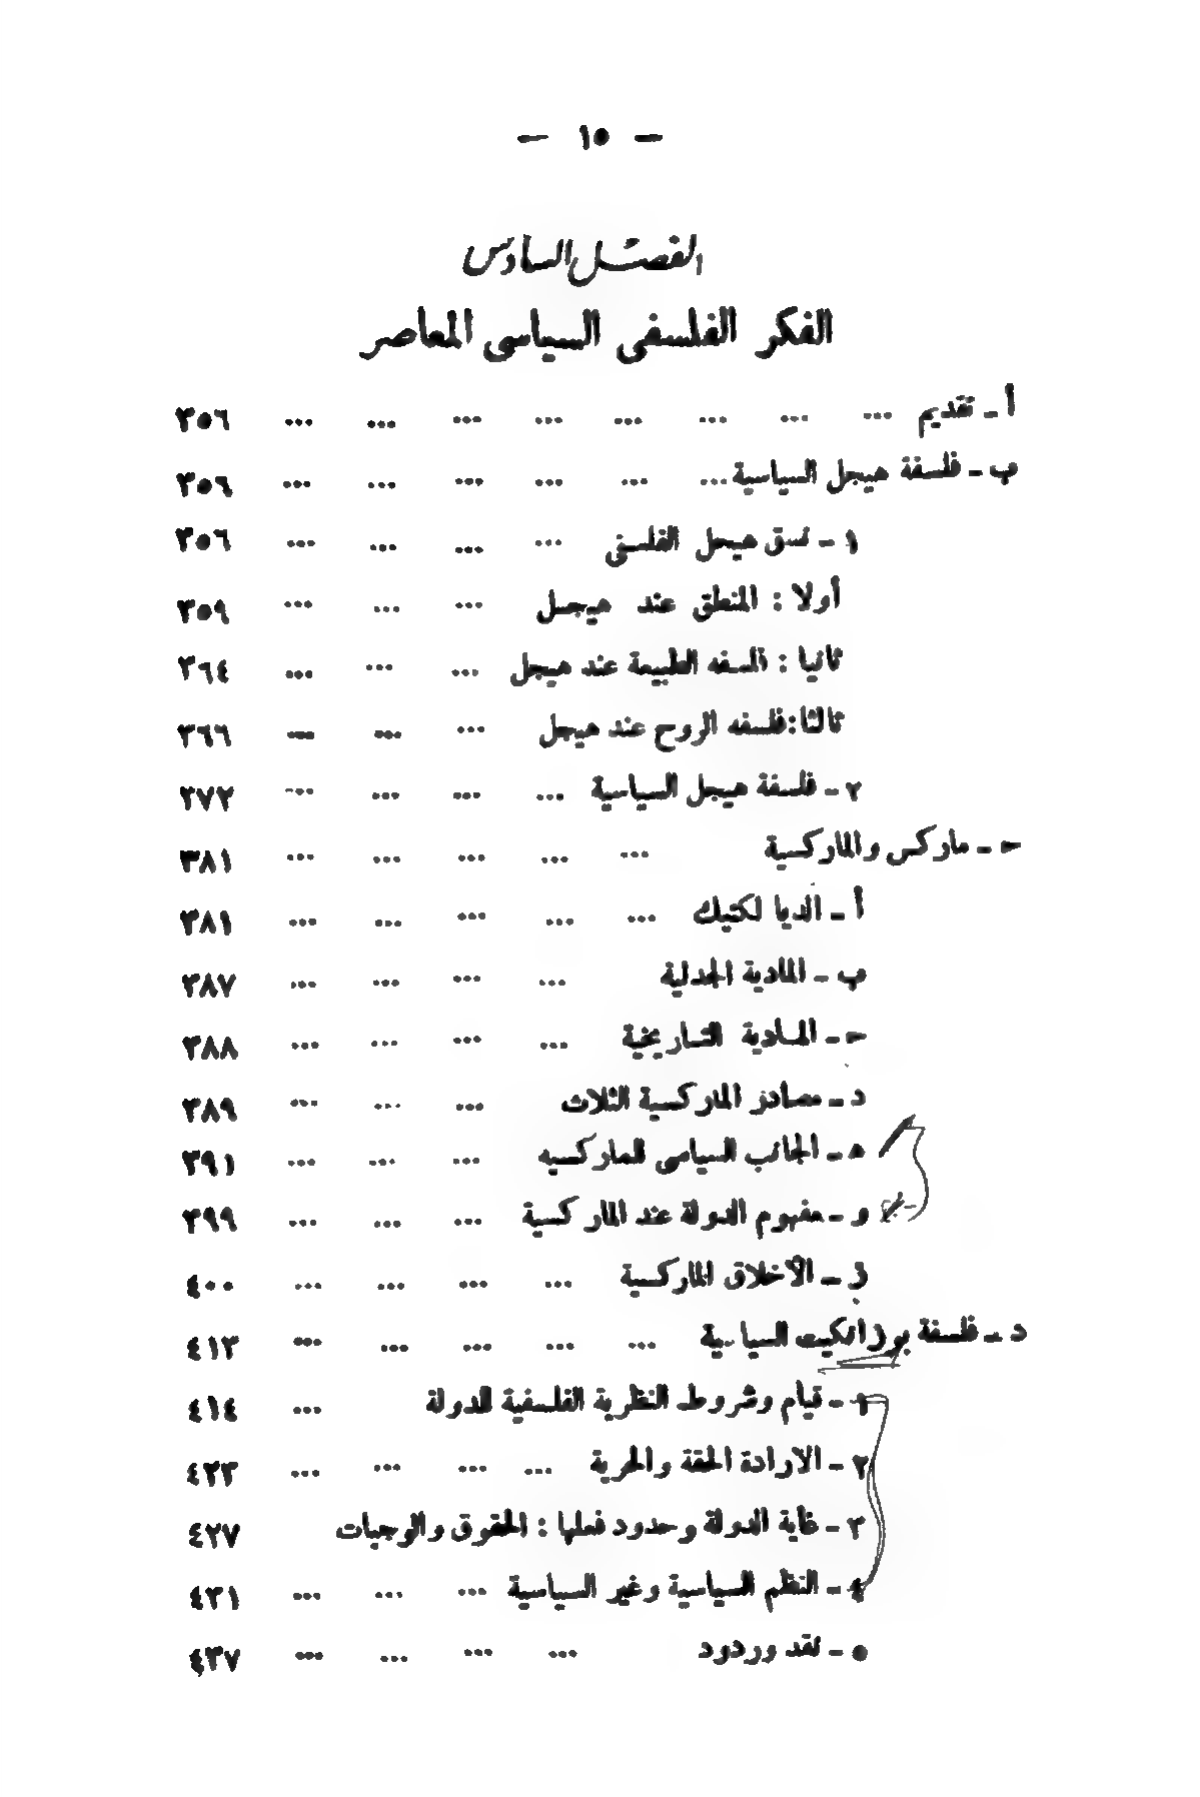 — ١٥ —
الفصل السادس
الفكر الفلسفى السياسى المعاصر
أ ـ تقديم ... ... ... ... ... ... ... ... ٣٥٦
ب ـ فلسفة هيجل السياسية ... ... ... ... ... ... ٣٥٦
١ ـ نسق هيجل الفلسفى ... ... ... ... ٣٥٦
أولا : المنطق عند هيجل ... ... ... ٣٥٩
ثانيا : فلسفه الطبيعة عند هيجل ... ... ... ٣٦٤
ثالثا : فلسفه الروح عند هيجل ... ... ... ٣٦٦
٢ ـ فلسفة هيجل السياسية ... ... ... ... ٣٧٢
حـ ـ ماركس والماركسية ... ... ... ... ... ٣٨١
أ ـ الديا لكتيك ... ... ... ... ... ٣٨١
ب ـ المادية الجدلية ... ... ... ... ٣٨٧
حـ ـ المادية التاريخية ... ... ... ... ٣٨٨
د ـ مصادر الماركسية الثلاث ... ... ... ٣٨٩
هـ ـ الجانب السياسى للماركسيه ... ... ... ٣٩١
و ـ مفهوم الدولة عند الماركسية ... ... ... ٣٩٩
ز ـ الأخلاق الماركسية ... ... ... ... ٤٠٠
د ـ فلسفة بوزانكيت السياسية ... ... ... ... ... ٤١٣
١ ـ قيام وشروط النظرية الفلسفية للدولة ... ٤١٤
٢ ـ الارادة الحقة والحرية ... ... ... ... ٤٢٣
٣ ـ غاية الدولة وحدود فعلها : الحقوق والوجبات ٤٢٧
٤ ـ النظم السياسية وغير السياسية ... ... ... ٤٣١
٥ ـ نقد وردود ... ... ... ... ٤٣٧